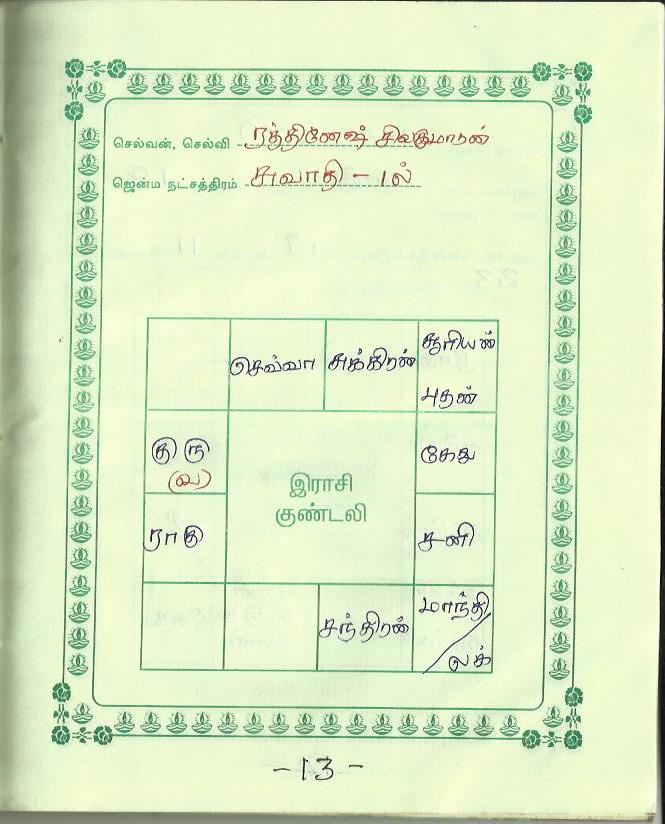 செல்வன், செல்வி ரத்தினேஷ் சிவகுமாரன்
ஜென்ம நட்சத்திரம் சுவாதி - 1ல்
செவ்வா சுக்கிரன் சூரியன்
புதன்
குரு கேது
(வ)
இராசி
குண்டலி
ராகு சனி
சந்திரன் மாந்தி/
லக்
- 13 -